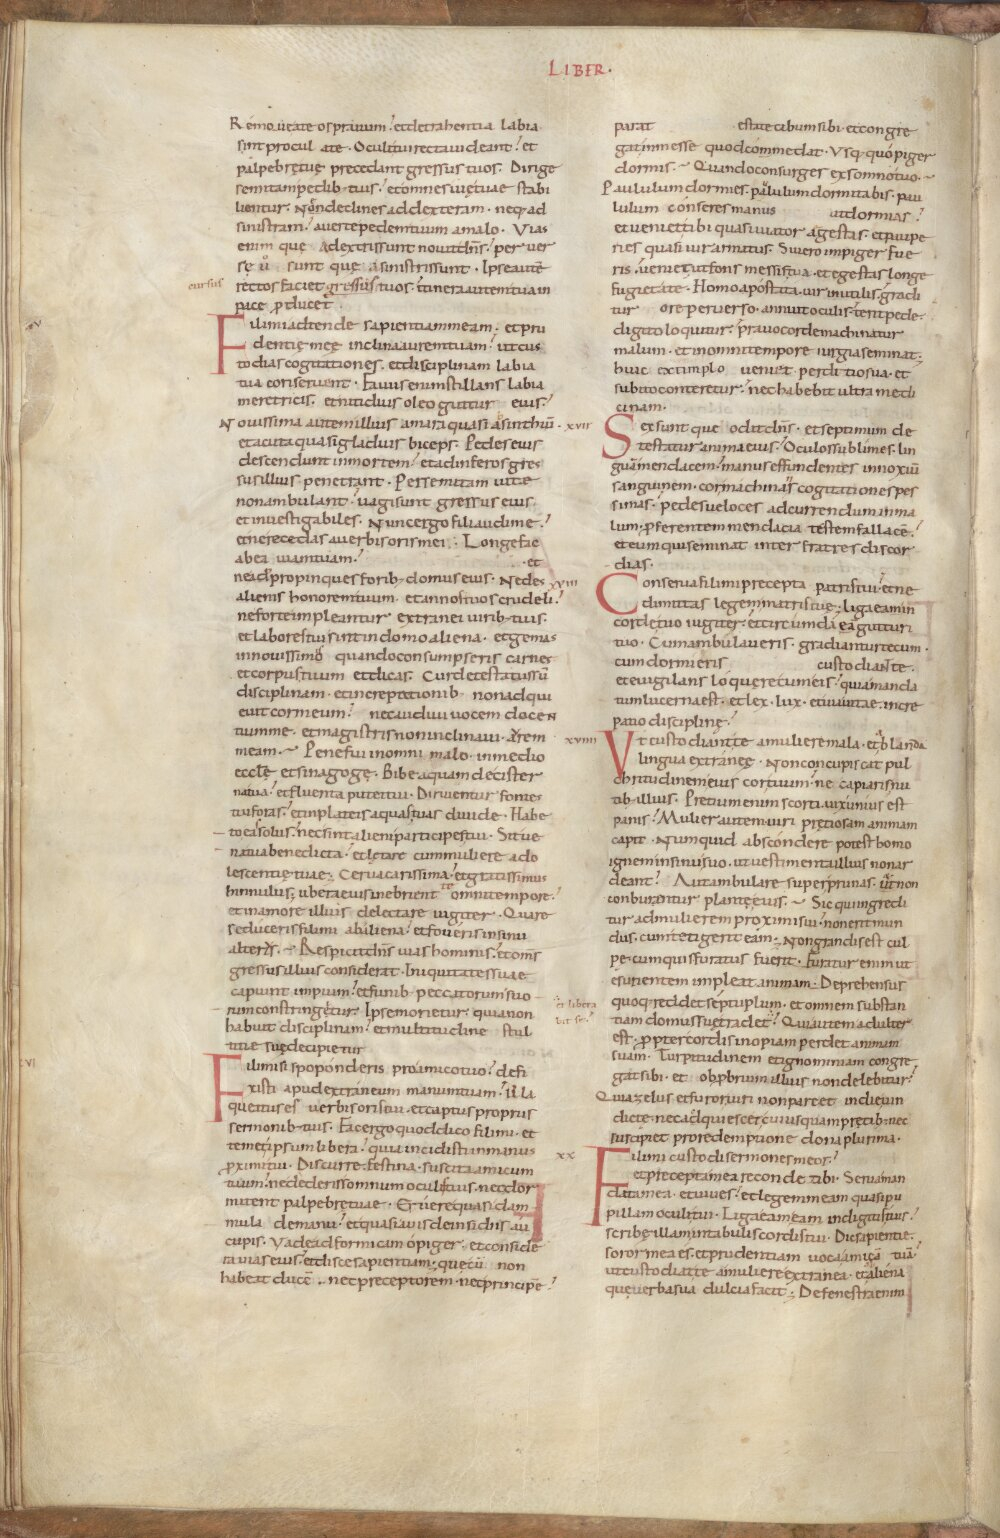 LIBER·
Remove ate os pravum? et detrahentia labia
sint procul ate· Oculi tui recta videant? et
palpebrę tuę precedant gressus tuos· Dirige
semitam pedib· tuis? et omnes vię tuae stabi
lientur· Non declines ad dexteram· neq; ad
sinistram? averte pedem tuum amalo· Vias
enim quę adextris sunt novit dn̄s? perver
sę ů sunt quę asinistris sunt· Ipse autē
cursus
rectos faciet gressus tuos? itinera autem tua in
pace ꝓducet·
Fili mi adtende sapientiam meam· et pru
dentię męę inclina aurem tuam? ut cus
todias cogitationes· et disciplinam labia
tua conservent· Favus enim stillans labia
meretricis· et nitidius oleo guttur eius?
Novissima autem illius amara quasi absinthiū·
xvii
et acuta quasi gladius biceps· Pedes eius
descendunt in mortem? et ad inferos gres
sus illius penetrant· Per semitam vitae
non ambulant? vagi sunt gressus eius·
et investigabiles· Nunc ergo fili audi me?
et ne recedas a verbis oris mei· Longe fac
abea viam tuam? et
ne adpropinques forib· domus eius· Ne des
xviii
alienis honorem tuum· et annos tuos crudeli?
ne forte impleantur extranei virib· tuis·
et labores tui sint in domo aliena· et gemas
in novissimo quando consumpseris carnes
et corpus tuum et dicas· Cur detestatus sū
disciplinam· et increpationib· non adqui
evit cor meum? nec audivi vocem docen
tium me· et magistris non inclinavi aurem
meam· Pene fui in omni malo· in medio
ecclę et sinagogę· Bibe aquam de cister
na tua? et fluenta putei tui· Diriventur fontes
tui foras? et in plateis aquas tuas divide· Habe
to eas solus? nec sint alieni participes tui· Sit ve
na tua benedicta? et lętare cum muliere ado
lescentię tuae· Cerva carissima? et gratissimus
hinnulus? ubera eius inebrient te omni tempore?
et in amore illius delectare iugiter· Quare
seduceris fili mi abaliena? et foveris in sinu
alterius· Respicit dn̄s vias hominis? et om̄s
gressus illius considerat· Iniquitates suae
capiunt impium? et funib· peccatorum suo
rum constringetur· Ipse morietur· quia non
habuit disciplinam? et multitudine stul
titiae suę decipietur
Fili mi si spoponderis pro amico tuo? defi
VI
xisti apud extraneum manum tuam? Illa
queatus es verbis oris tui· et captus propriis
sermonib· tuis· Fac ergo quod dico fili mi· et
temetipsum libera? quia incidisti in manus
proximi tui· Discurre· festina· suscita amicum
tuum? ne dederis somnum oculis tuis· nec dor
mitent palpebre tuae· Eruere quasi dam
mula de manu? et quasi avis de insidiis au
cupis· Vade ad formicam o piger? et conside
ra vias eius? et disce sapientiam; quę cū non
habeat ducē· nec preceptorem· nec principē?
parat estate cibum sibi· et congre
gat in messe quod commedat· Vsq; quo piger
dormis· Quando consurges ex somno tuo·
Paululum dormies· paululum dormitabis· pau
lulum conseres manus ut dormias?
et veniet tibi quasi viator egestas· et paupe
ries quasi vir armatus· Si vero impiger fue
ris· veniet ut fons messis tua· et egestas longe
fugiet a te· Homo apostata· vir inutilis· gradi
tur ore perverso· annuit oculis· terit pede·
digito loquitur? pravo corde machinatur
malum· et in omni tempore iurgia seminat·
huic extimplo veniet perditio sua· et
subito conteretur? nec habebit ultra medi
cinam·
Sex sunt que odit dn̄s· et septimum de
testatur anima eius? Oculos sublimes· lin
guam mendacem? manus effundentes innoxiū
sanguinem· cor machinans cogitationes pes
simas· pedes veloces ad currendum in ma
lum· ꝓferentem mendacia testem fallacē?
et eum qui seminat inter fratres discor
dias·
Conserva fili mi precepta patris tui? et ne
dimittas legem matris tuę; liga ea in
corde tuo iugiter· et circumda ea gutturi
tuo· Cum ambulaveris· gradiantur tecum·
cum dormieris custodiant te·
et evigilans loquere cum eis? quia manda
tum lucerna est· et lex· lux· et via vitae· incre
patio disciplinę?
xviiii
Vt custodiant te a muliere mala· et a blanda
lingua extraneę· Non concupiscat pul
chritudinem eius cor tuum? ne capiaris nu
tib· illius· Pretium enim scorti· vix unius est
panis? Mulier autem viri pretiosam animam
capit· Numquid abscondere potest homo
ignem in sinu suo· ut vestimenta illius non ar
deant? Aut ambulare super prunas· ut non
conburantur plantę eius· Sic qui ingredi
tur ad mulierem proximi sui? non erit mun
dus· cum tetigerit eam· Non grandis est cul
pe· cum quis furatus fuerit· Furatur enim ut
esurientem impleat animam· Deprehensus
et libera
bitur
quoq; reddet septuplum· et omnem substan
tiam domus suę tradet? Qui autem adulter
est· ꝓpter cordis inopiam perdet animam
suam· Turpitudinem et ignominiam congre
gat sibi· et obꝓbrium illius non delebitur?
Quia zelus et furor viri non parcet in die vin
dictę· nec adquiescet cuiusquam precib· nec
suscipiet pro redemptione dona plurima·
xx
Fili mi custodi sermones meos?
et precepta mea reconde tibi· Serva man
data mea· et vives? et legem meam quasi pu
pillam oculi tui· Liga eam in digitis tuis?
scribe illam in tabulis cordis tui· Dic sapientię·
soror mea es· et prudentiam voca amicā tuā?
ut custodiat te a muliere extranea· et aliena
quę verba sua dulcia facit; De fenestra enim